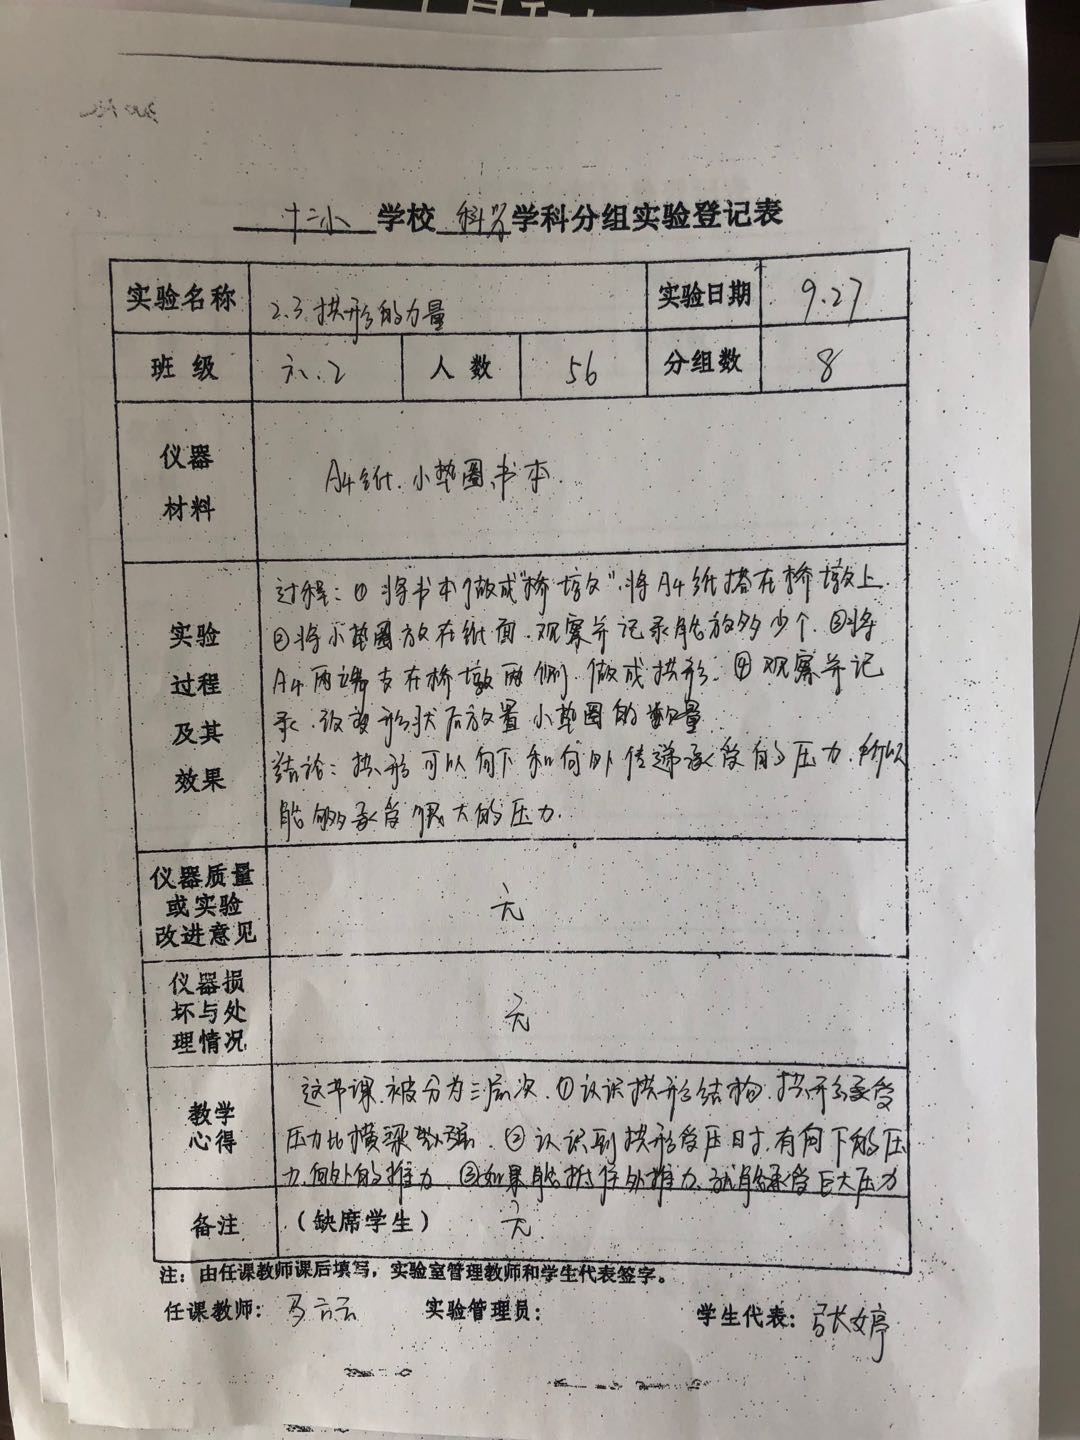 十二小 学校 科学 学科分组实验登记表
实验名称 2.3 拱形的力量 实验日期 9.27
班级 六.2 人数 56 分组数 8
仪器
材料
A4纸、小垫圈、书本.
实验
过程
及其
效果
过程：①将书本做成"桥墩"，将A4纸搭在桥墩上
②将小垫圈放在纸面，观察并记录能放多少个．③将
A4两端支在桥墩两侧，做成拱形．④观察并记
录．改变形状后放置小垫圈的数量
结论：拱形可以向下和向外传递承受的压力，所以
能够承受很大的压力．
仪器质量
或实验
改进意见
无
仪器损
坏与处
理情况
无
教学
心得
这节课被分为三层次．①认识拱形结构，拱形承受
压力比横梁强．②认识到拱形受压时，有向下的压
力，向外的推力．③如果能抵住外推力，就能承受巨大压力
备注 （缺席学生） 无
注：由任课教师课后填写，实验室管理教师和学生代表签字。
任课教师： 实验管理员： 学生代表：张婷